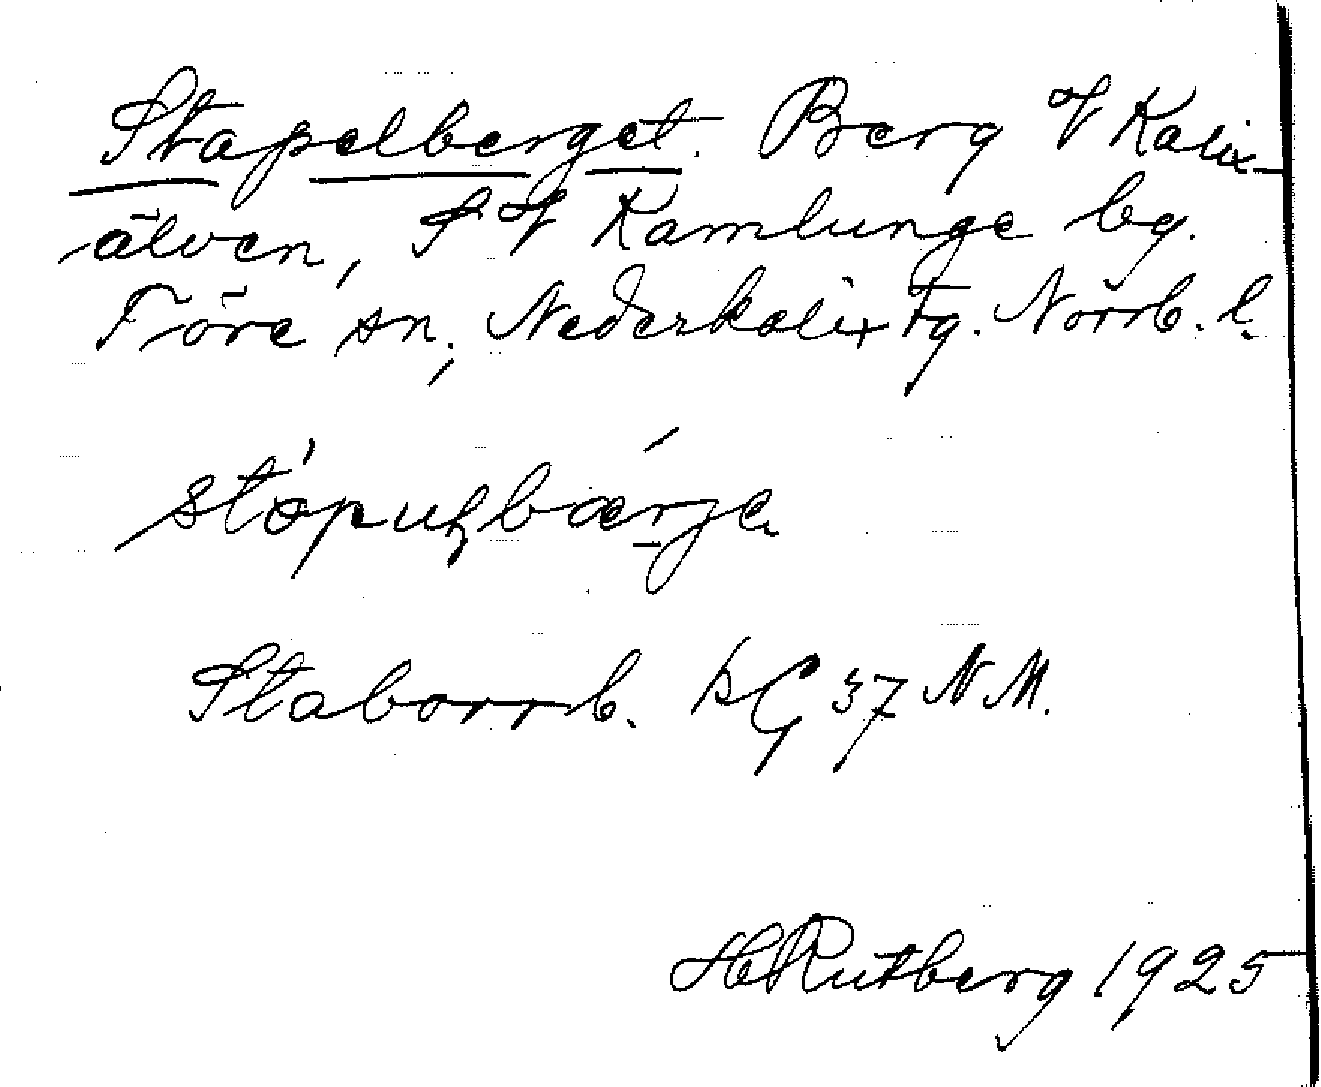 Stapelberget. Berg V Kalix-
älven, SV Kamlunge bg.
Töre sn, Nederkalix tg. Norrb. l.
Staborrb. kG 37 N.M.
HRutberg 1925